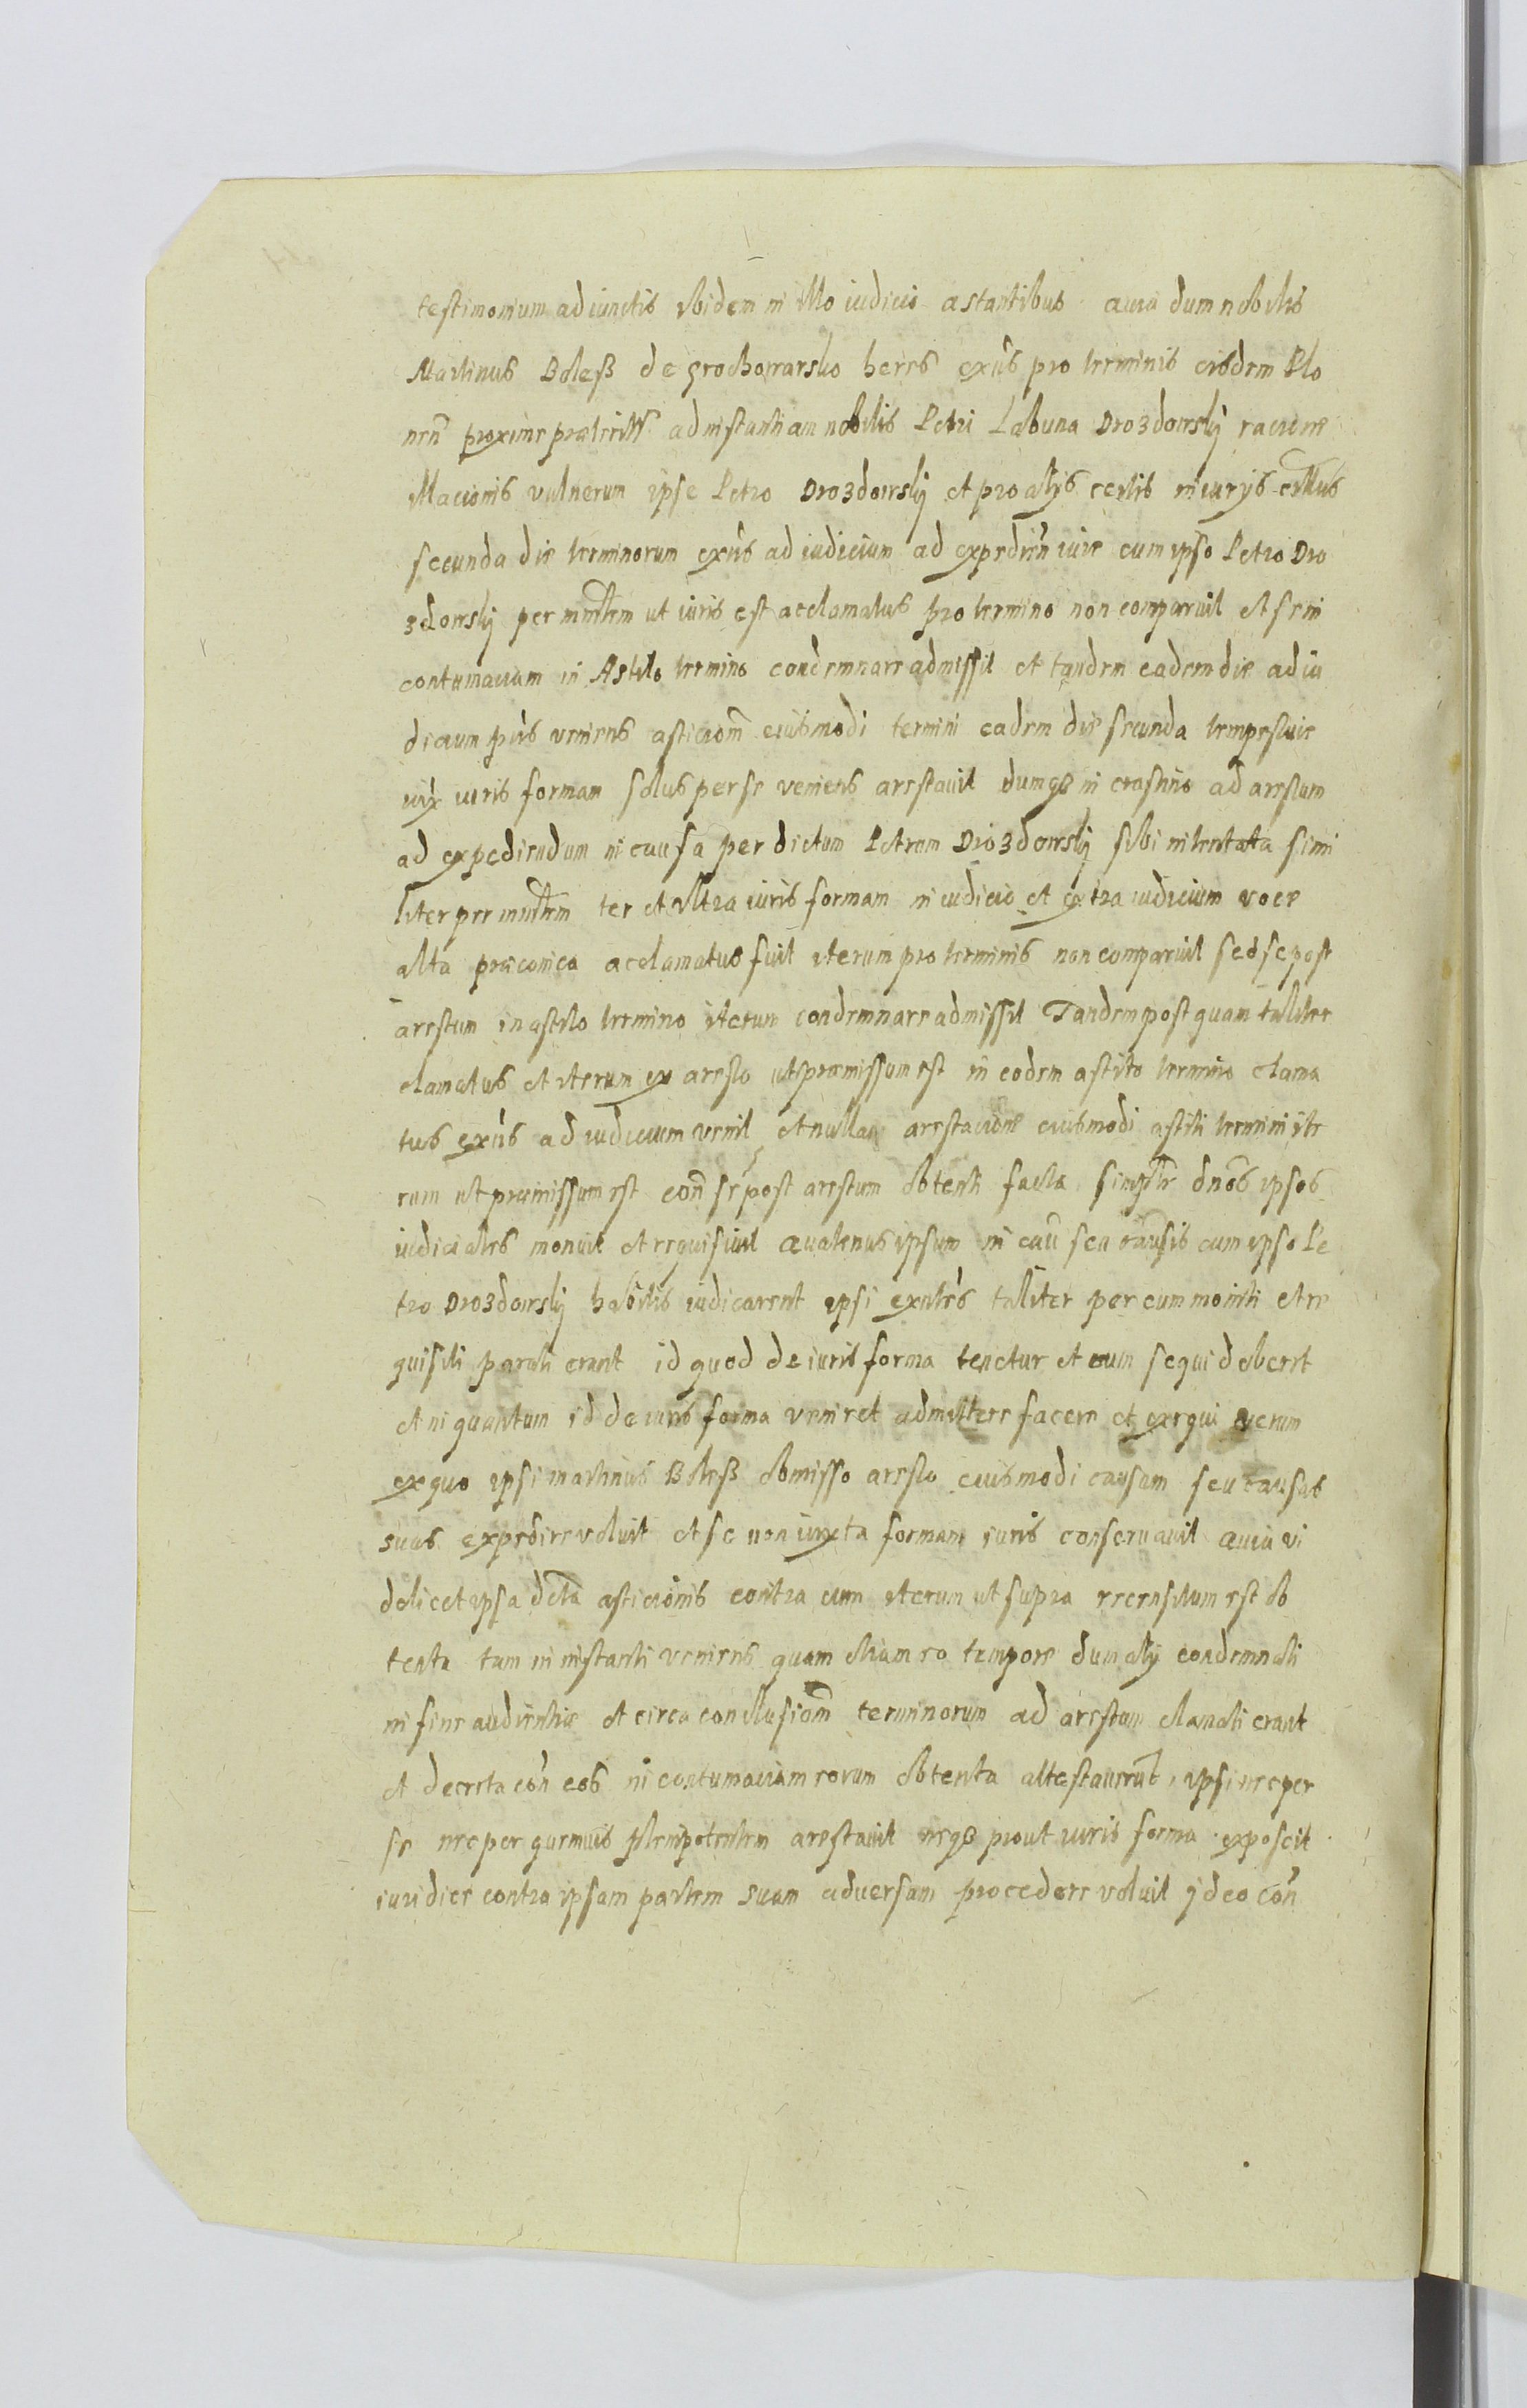 testimonium adiunctis ibidem in illo iudicio astantibus quia dum nobilis
Martinus Boleß de Grochowarsko heres exñs pro terminis eisdem Plo
neñ proxime præteritis ad instantiam nobilis Petri Labuna Drozdowsky racione
illacionis vulnerum ipse Petro Drozdowsky et pro alys certis iniurys citatus
secunda die terminorum exñs ad iudicium ad expedieñ iure cum ipso Petro Dro
zdowsky per minrlem ut iuris est acclamatus pro termino non comparuit et se in
contumaciam in Astito termino condemnare admissit et tandem eadem die ad iu
dicium pñs veniens asticiom eiusmodi termini eadem die secunda tempestive
iux iuris formam solus per se veniens arestavit dumqз in crastino ad arestum
ad expediendum in causa per dictum Petrum Drozdowsky sibi intentata simi
liter per mintrlem ter et ultra iuris formam in iudicio et extra iudicium voce
alta præconica acclamatus fuit iterum pro terminis non comparuit sed se post
arestum in astito termino iterum condemnare admissit Tandem post quam taliter
clamatus et iterum ex aresto ut præmissum est in eodem astito termino clama
tus exñs ad iudicium venit et nulla arestacione eiusmodi astiti termini ite
rum ut præmissum est coñ se post arestum obtenti facta simplr dños ipsos
iudiciales monuit et requisivit quatenus ipsum in caũ seu causis cum ipso Pe
tro Drozdowsky habitis iudicarent ipsi exntes taliter per eum moniti et re
quisiti parati erant id quod de iuris forma tenetur et eum sequi deberet
et in quantum id de iuris forma veniret admittere facere et exequi verum
ex quo ipsi Martinus Boleß obmisso aresto eiusmodi causam seu causas
suas expedire voluit et se non iuxta formam iuris conservavit quia vi
delicet ipsa dcta asticionis contra eum iterum ut supra recensitum est ob
tenta tam in instanti veniens quam etiam eo tempore dum aly condemnati
in fine audientiæ et circa conclusiom terminorum ad arestum clamati erant
et decreta coñ eos in contumaciam eorum obtenta attestaverunt, ipsi nec per
se nec per quemvis plenipotentem arestavit neqз prout iuris forma exposcit
iuridice contra ipsam partem suam adversam procedere voluit ideo coñ